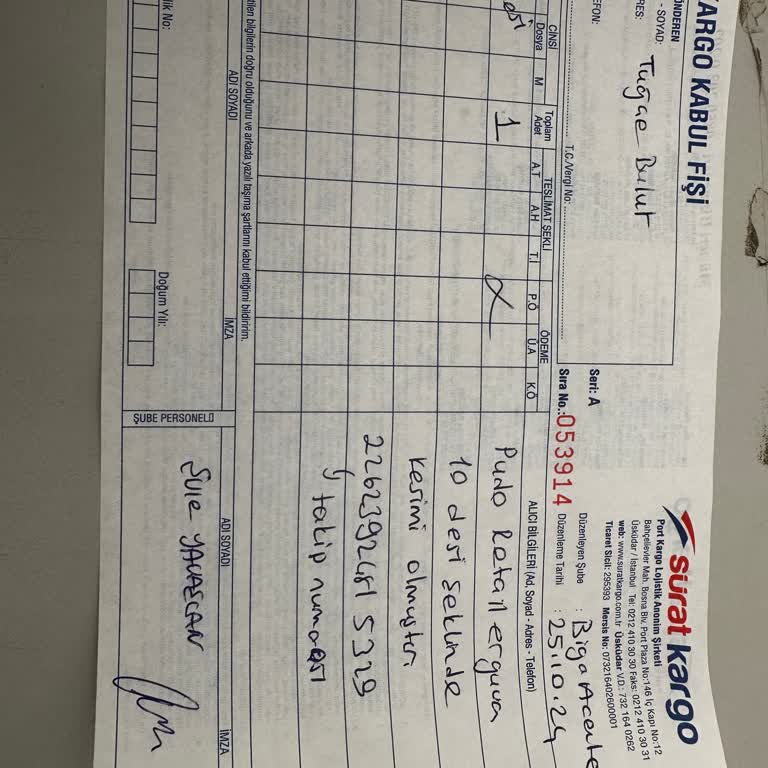 KARGO KABUL FİŞİ
sürat kargo
Port Kargo Lojistik Anonim Şirketi
Bahçelievler Mah. Bosna Blv. Port Plaza No:146 İç Kapı No:12
Üsküdar / İstanbul Tel: 0212 410 30 30 Faks: 0212 410 30 31
web: www.suratkargo.com.tr Üsküdar V.D.: 732 164 0262
Ticaret Sicil: 295393 Mersis No: 0732164026200001
GÖNDEREN
- SOYAD: Tuğçe Bulut
RES:
EFON:
T.C./Vergi No:
Seri: A
Sıra No.: 053914
Düzenleyen Şube : Biga Acente
Düzenleme Tarihi : 25.10.24
CİNSİ
Toplam Adet
TESLİMAT ŞEKLİ
ÖDEME
ALICI BİLGİLERİ (Ad, Soyad - Adres - Telefon)
Dosya
M
A.T
A.H
T.İ
P.Ö
Ü.A
K.Ö
1
Pudo Retail erguva
10 desi şeklinde
kesimi olmuştur
22623924815329
takip numarası
dilen bilgilerin doğru olduğunu ve arkada yazılı taşıma şartlarını kabul ettiğimi bildiririm.
ADI SOYADI
İMZA
ŞUBE PERSONELİ
ADI SOYADI
İMZA
lik No:
Doğum Yılı:
Şule YAVAŞCAN